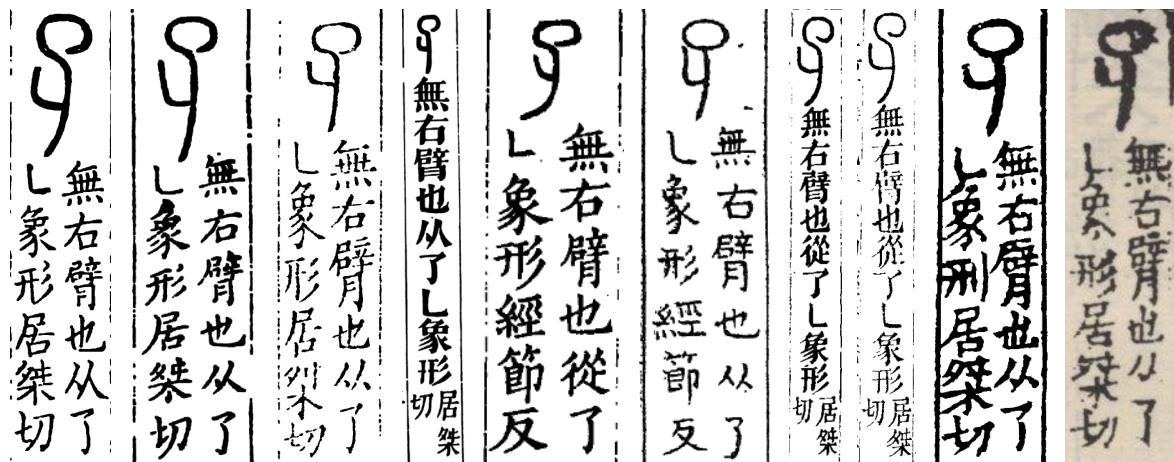 孑
無右臂也从了
乚象形居桀切
孑
無右臂也从了
乚象形居桀切
孑
無右臂也从了
乚象形居桀切
孑無右臂也从了乚象形
居桀
切
孑
無右臂也從了
乚象形經節反
孑
無右臂也从了
乚象形經節反
孑無右臂也從了乚象形
居桀
切
孑無右臂也從了乚象形
居桀
切
孑
無右臂也从了
乚象刑居桀切
孑
無右臂也从了
乚象形居桀切